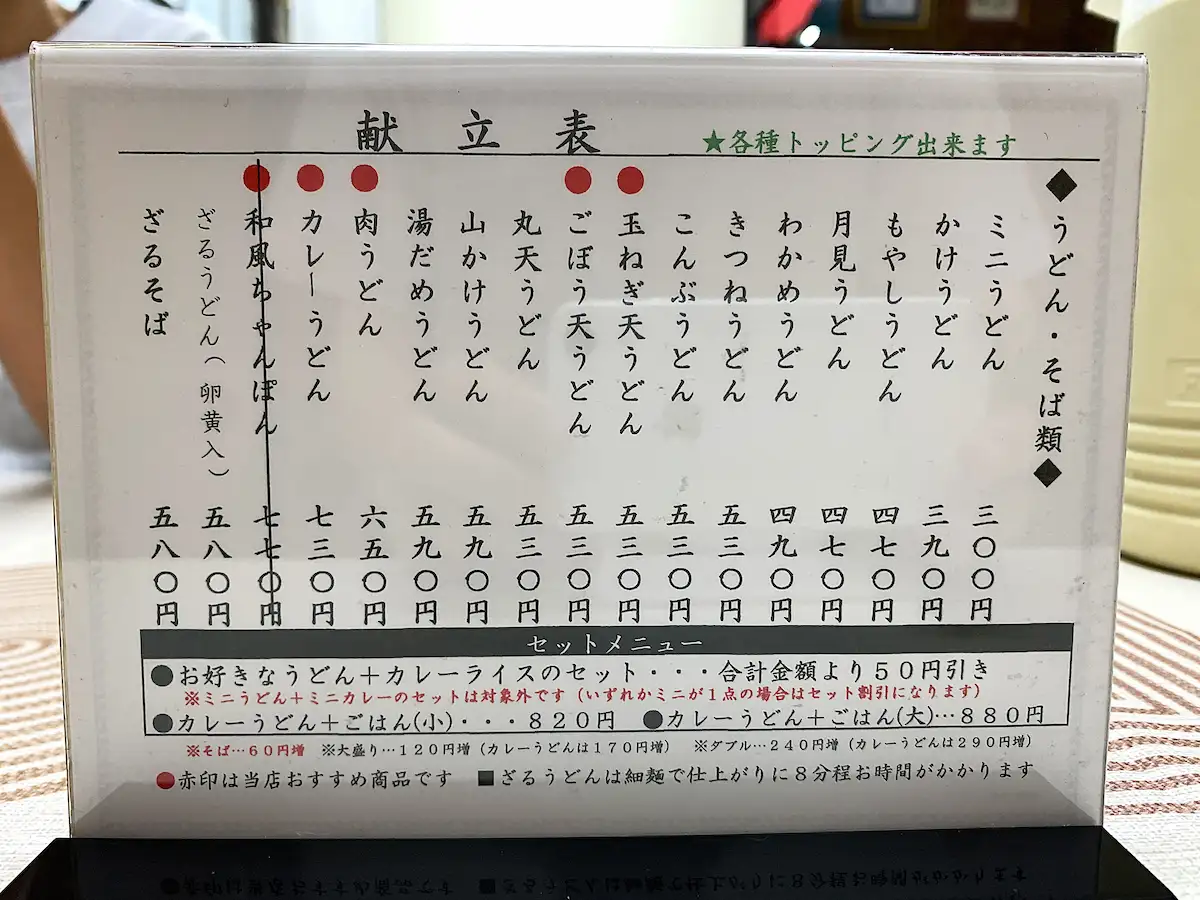 献立表
★各種トッピング出来ます
◆うどん・そば類◆
ミニうどん 三〇〇円
かけうどん 三九〇円
もやしうどん 四七〇円
月見うどん 四七〇円
わかめうどん 四九〇円
きつねうどん 五三〇円
こんぶうどん 五三〇円
●玉ねぎ天うどん 五三〇円
●ごぼう天うどん 五三〇円
丸天うどん 五三〇円
山かけうどん 五九〇円
湯だめうどん 五九〇円
●肉うどん 六五〇円
●カレーうどん 七三〇円
●和風ちゃんぽん 七七〇円
ざるうどん(卵黄入) 五八〇円
ざるそば 五八〇円
セットメニュー
●お好きなうどん+カレーライスのセット・・・合計金額より50円引き
※ミニうどん+ミニカレーのセットは対象外です(いずれかミニが1点の場合はセット割引になります)
●カレーうどん+ごはん(小)・・・820円 ●カレーうどん+ごはん(大)…880円
※そば…60円増 ※大盛り…120円増(カレーうどんは170円増) ※ダブル…240円増(カレーうどんは290円増)
●赤印は当店おすすめ商品です ■ざるうどんは細麺で仕上がりに8分程お時間がかかります